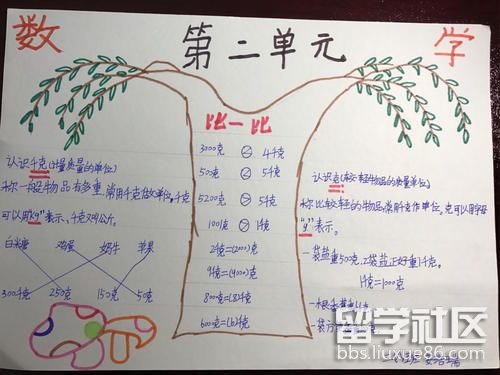 数 学
第二单元
比一比
3700克 > 4千克
500克 < 5千克
5200克 > 5千克
1001克 > 1千克
2千克=(2000)克
9千克=(9000)克
800克=(8)千克
600克=(6)千克
认识千克(计量质量的单位)
称一般物品有多重,常用千克作单位,千克
可以用“kg”表示、千克又叫公斤。
白米 鸡蛋 奶牛 苹果
300千克 250克 150克 50克
认识克:(较轻物品的质量单位)
称比较轻的物品,常用克作单位,克可以用字母
“g”表示。
一袋盐重500克,2袋盐正好重1千克。
1千克=1000克
一根香蕉
一袋
留学社区
bbs.liuxue86.com